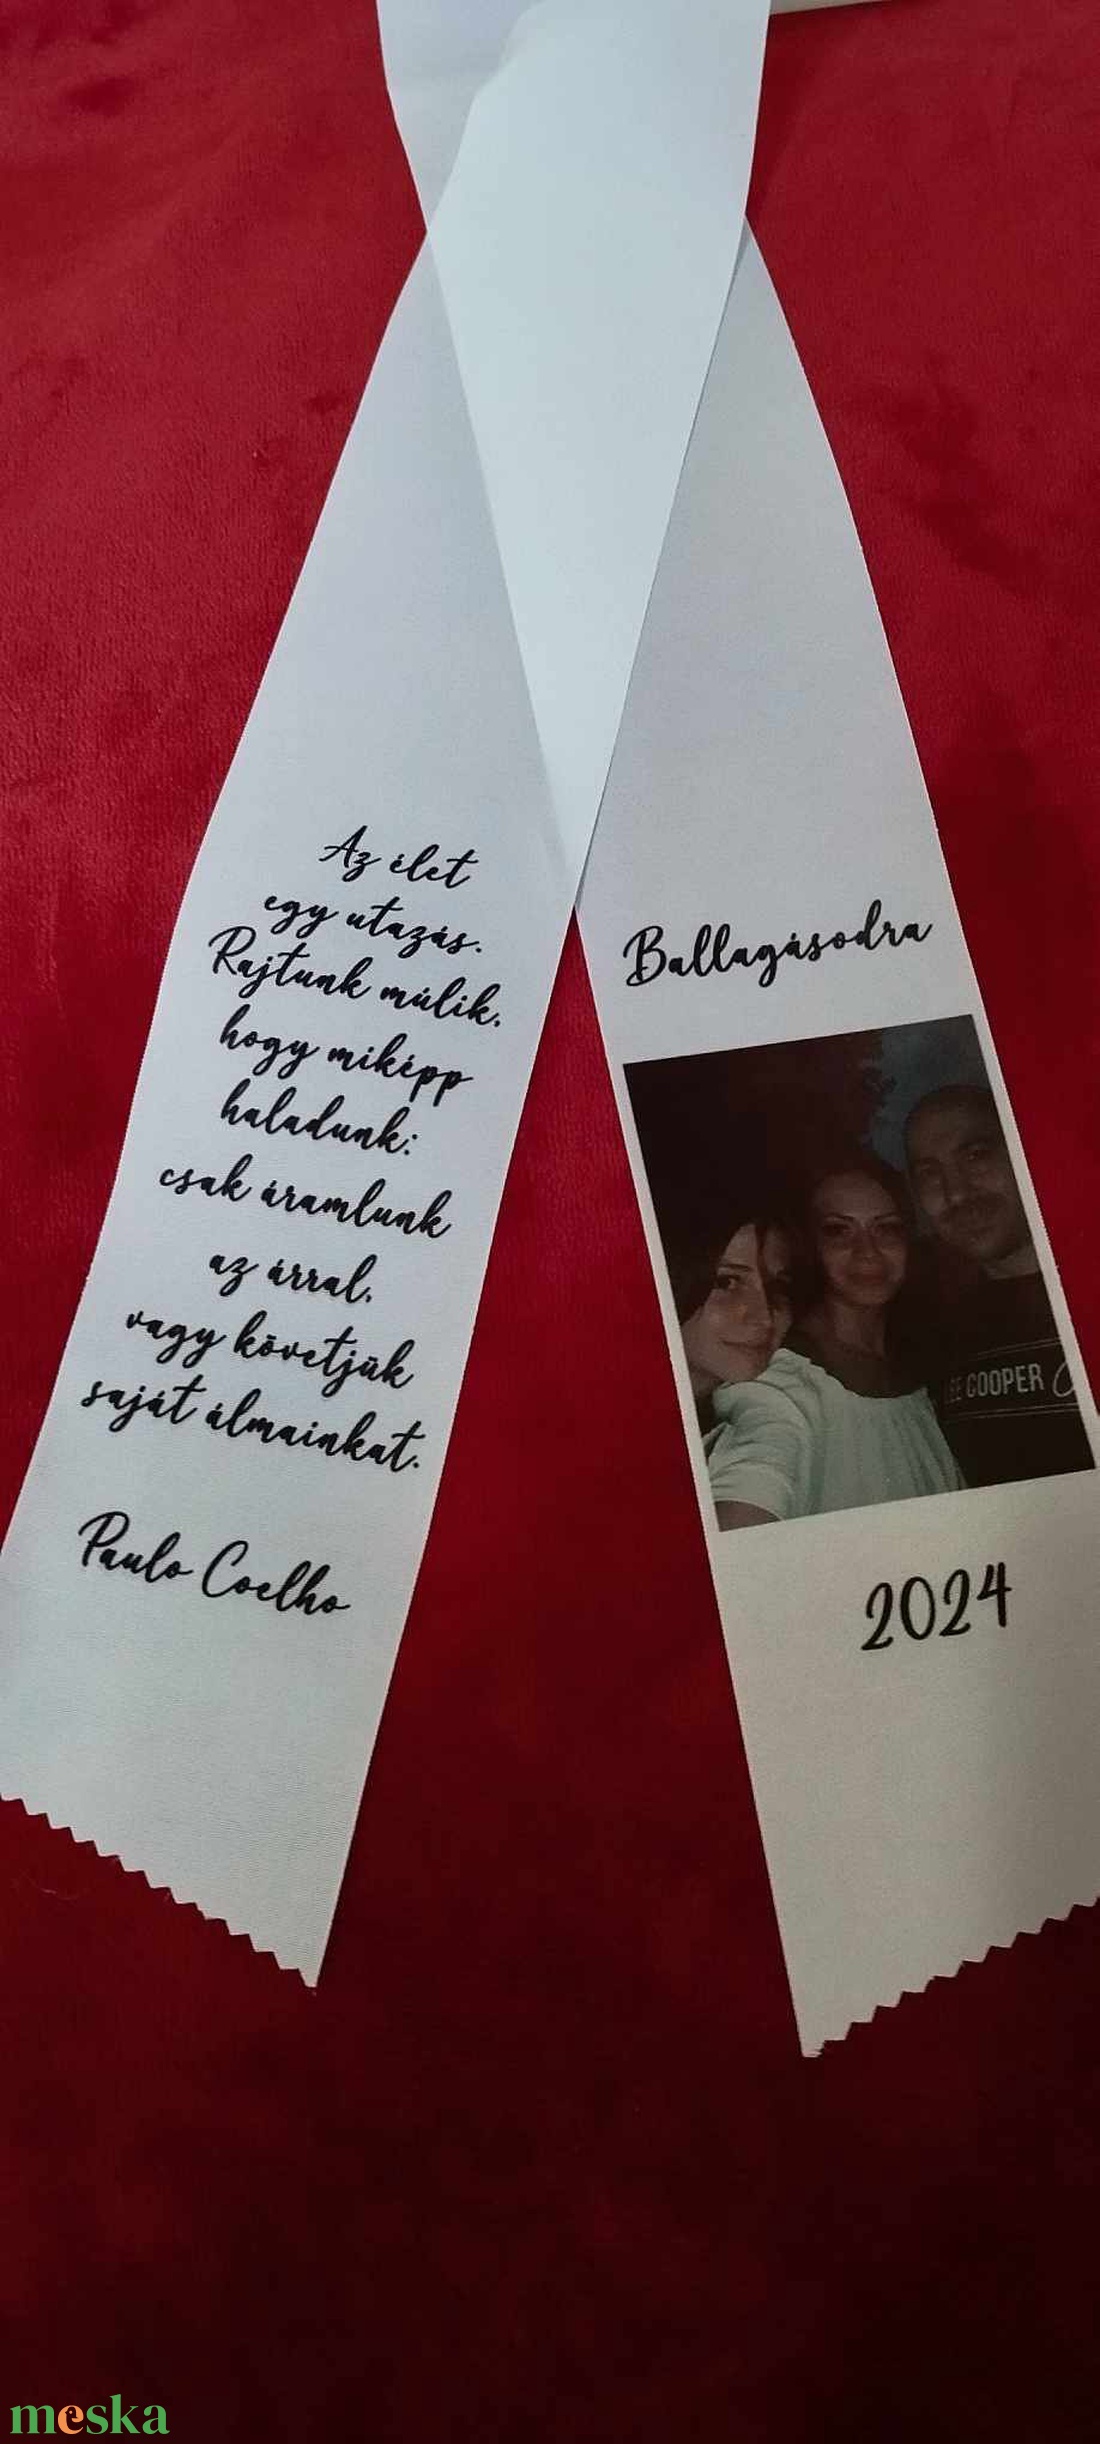 Az élet
egy utazás.
Rajtunk múlik,
hogy miképp
haladunk:
csak áramlunk
az árral,
vagy követjük
saját álmainkat.
Paulo Coelho
Ballagásodra
COOPER
2024
meska